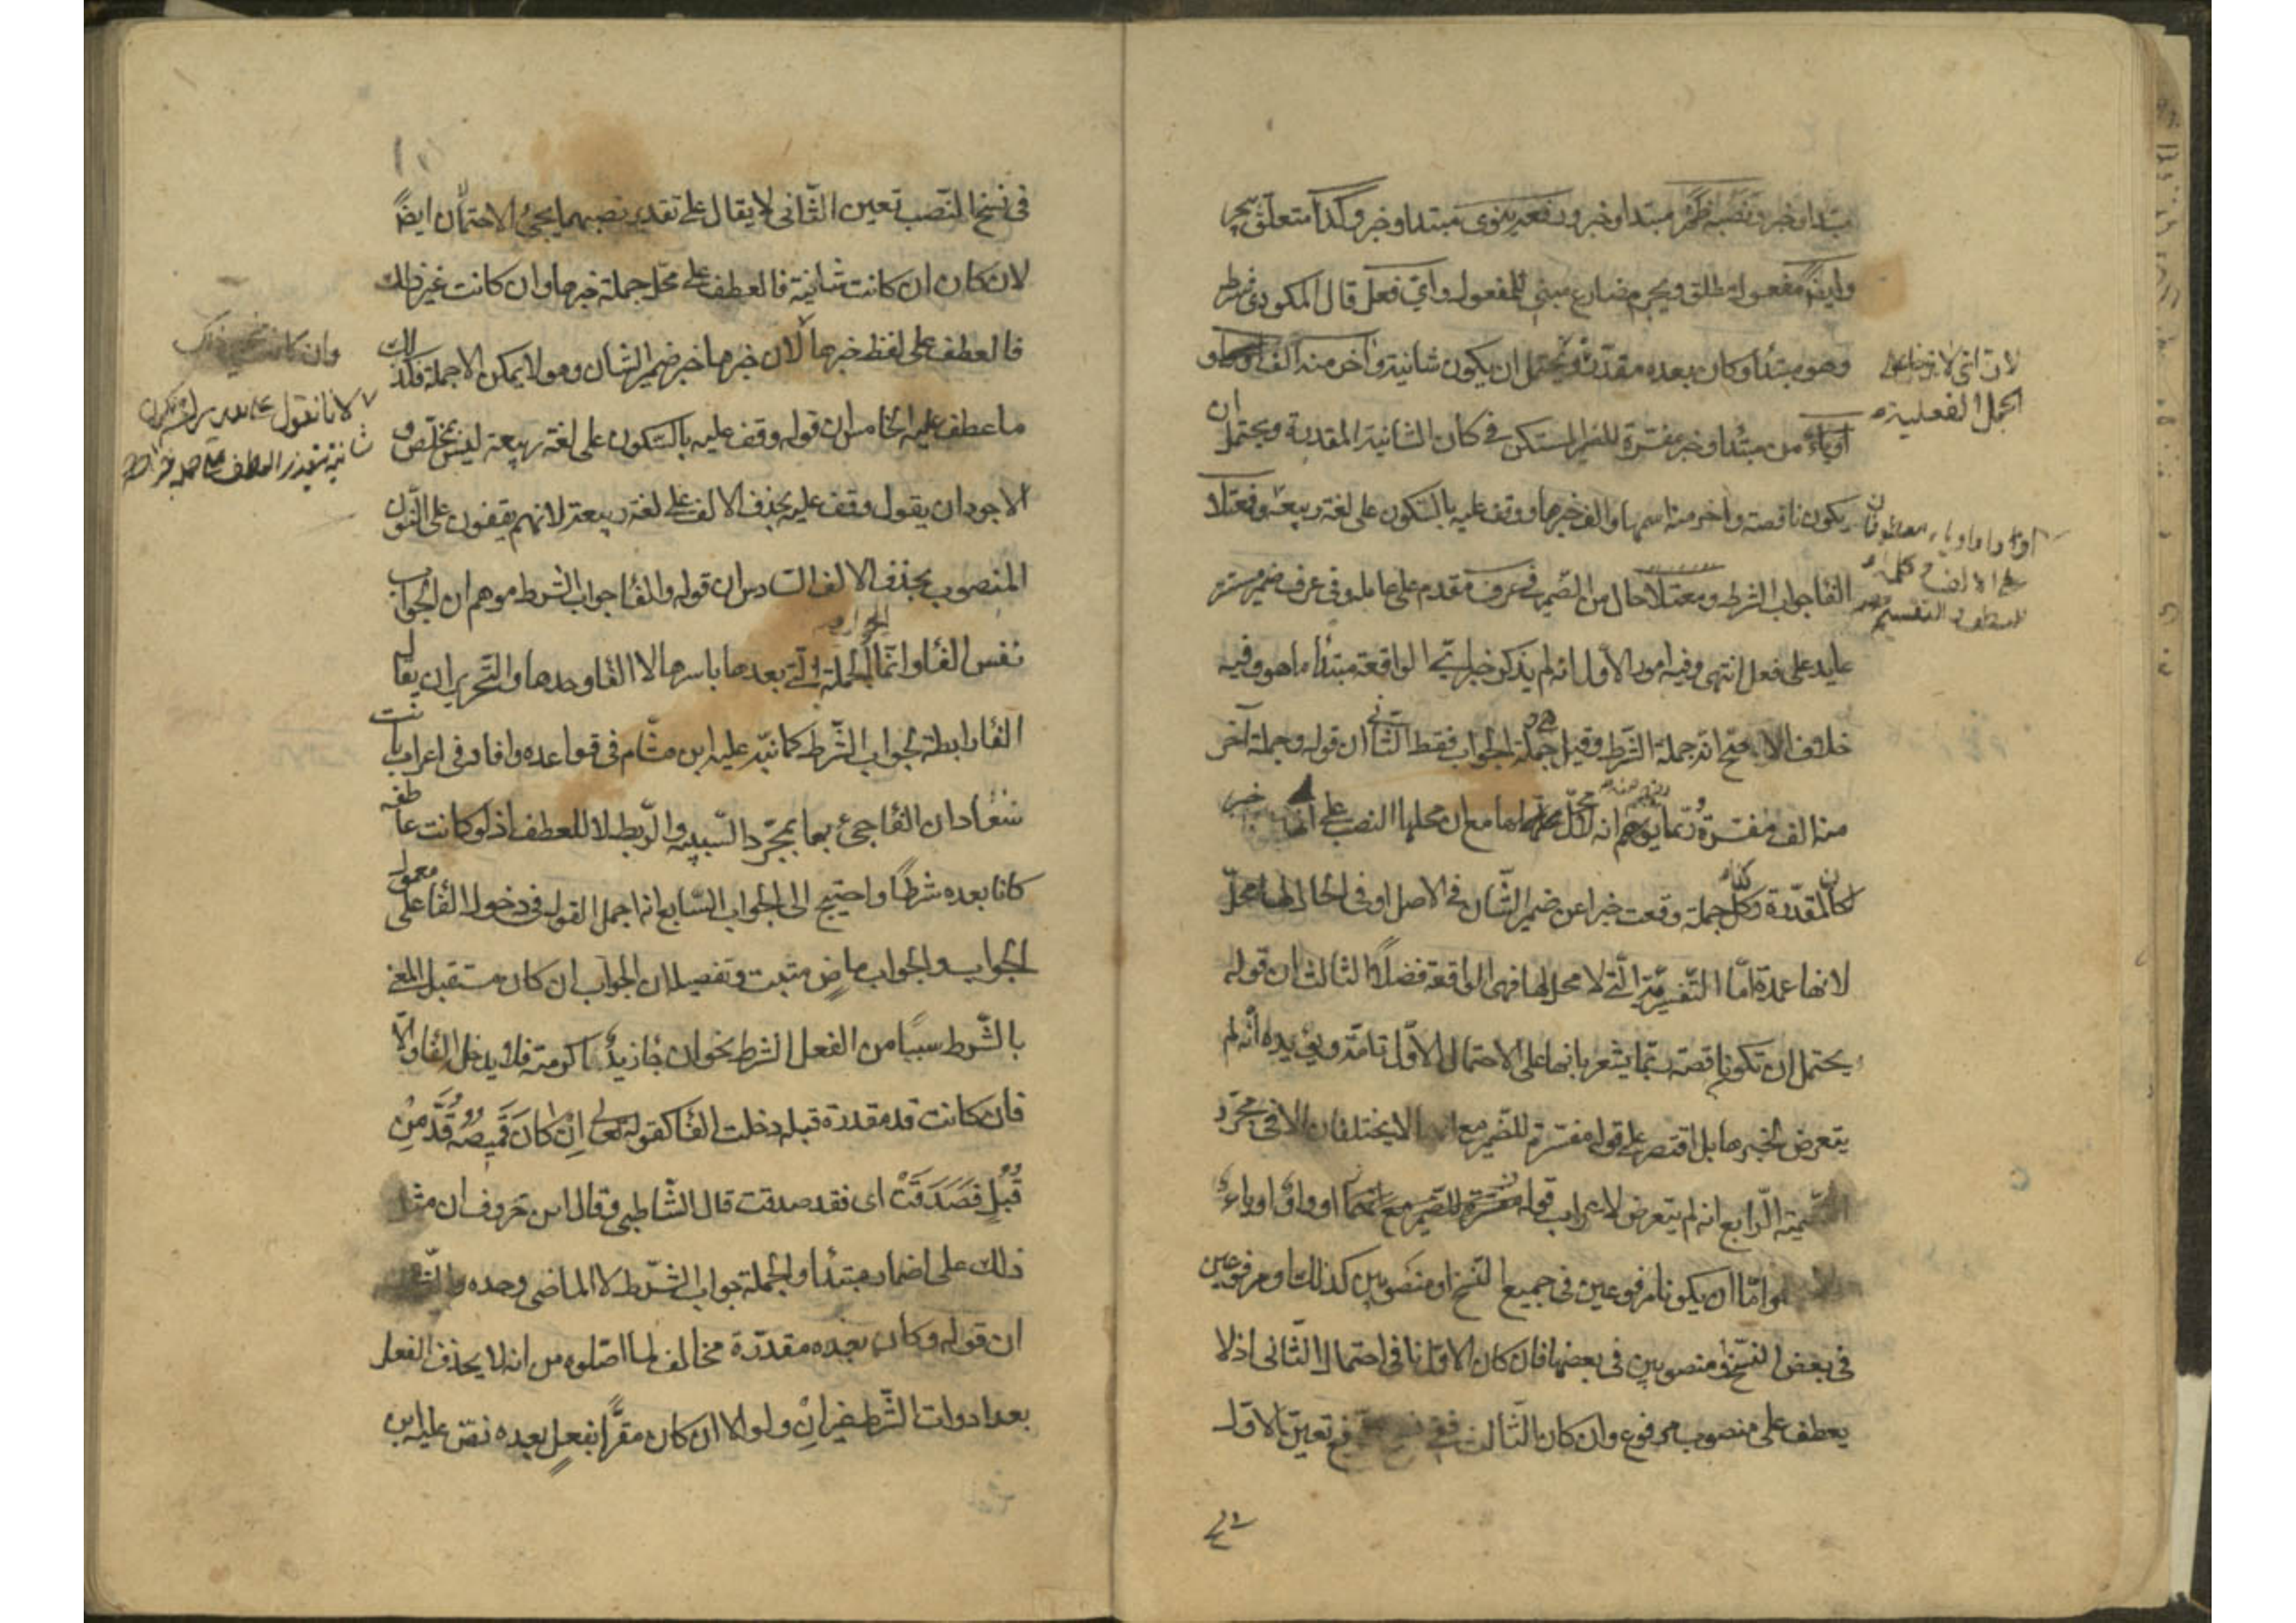 مبتدا وخبر ونصبه ظهر مبتدا وخبر ورفعه ينوى مبتدا وخبر وكذا متعلق بيجر
وايضا مفعول مطلق ويجر مضارع مبني للمفعول واي فعل قال المكودي شرط
وهو مبتدأ وكان بعده مقدرة ويحتمل ان يكون شانية وآخر منه الف او واو
او ياء من مبتدأ وخبر مفسرة للضمير المستكن في كان الشانية المقدرة ويحتمل ان
يكون ناقصة وآخر منه اسمها والف خبرها ووقف عليه بالسكون على لغة ربيعة ومعتلا
الفا جواب الشرط ومعتلا حال من الضمير في عرف مقدم على عامله وفي عرف ضمير مستتر
عايد على فعل انتهى وفيه امور الاول انه لم يذكر خبر اي الواقعة مبتدأ ما هو وفيه
خلاف الاصح انه جملة الشرط وقيل جملة الجواب فقط الثاني ان قوله وجملة آخر
منه الف مفسرة ربما يوهم انه لا محل لها مع ان محلها النصب على انها خبر
لكان المقدرة وكل جملة وقعت خبرا عن ضمير الشان في الاصل او في الحال لها محل
لانها عمدة اما التفسيرية التي لا محل لها فهي الواقعة فضلة الثالث ان قوله
يحتمل ان تكون ناقصة ربما يشعر بانها على الاحتمال الاول تامة ويؤيده انه لم
يتعرض لخبرها بل اقتصر على قوله مفسرة للضمير مع الا يختلفان الا في مجرد
التسمية الرابع انه لم يتعرض لاعراب قوله او واو او ياء
واما ان يكونا مرفوعين في جميع النسخ او منصوبين كذلك او مرفوعين
في بعض النسخ ومنصوبين في بعضها فان كان الاول نافى احتمال الثاني اذ لا
يعطف على منصوب مرفوع وان كان الثالث ففي نسخ الرفع تعين الاول
لان اي لا تضاف الى
الجمل الفعلية
او واو او ياء معطوفان
على الالف
للعطف و التقسيم
في نسخ النصب تعين الثاني لا يقال على تقدير نصبهما يجيء الاحتمالان ايضا
لان كان ان كانت شانية فالعطف على محل جملة خبرها وان كانت غير ذلك
فالعطف على لفظ خبرها لان خبرها خبر ضمير الشان وهو لا يمكن الا جملة فكذلك
ما عطف عليه الخامس ان قوله وقف عليه بالسكون على لغة ربيعة ليس بمخلص و
الاجود ان يقول وقف عليه بحذف الالف على لغة ربيعة لانهم يقفون على المنون
المنصوب بحذف الالف السادس ان قوله والفا جواب الشرط موهم ان الجواب
نفس الفا وانما الجملة التي بعدها باسرها لا الفا وحدها والتحرير ان يقال
الفا رابطة لجواب الشرط كما نبه عليه ابن هشام في قواعده وافاد في اعراب بانت
سعاد ان الفا جيء بها بمجرد السببية والربط لا للعطف اذ لو كانت عاطفة
كانا بعده شرطا واحتيج الى الجواب السابع انه اجمل القول في دخول الفا على معمول
الجواب والجواب ماض مثبت وتفصيله ان الجواب ان كان مستقبل المعنى
بالشرط سببا من الفعل الشرط نحو ان جا زيد اكرمته فلا يدخل الفا والا
فان كانت قد مقدرة قبله دخلت الفا كقوله تعالى ان كان قميصه قد من
قبل فصدقت اى فقد صدقت قال الشاطبي وقال ابن خروف ان مثل
ذلك على اضمار مبتدأ والجملة جواب الشرط لا الماضى وحده
ان قوله وكان بعده مقدرة مخالف لما اصلوه من انه لا يحذف الفعل
بعد ادوات الشرط غير ان ولو الا ان كان مقرا بفعل بعده نص عليه ابن
وان كانت غير ذلك
لانا نقول